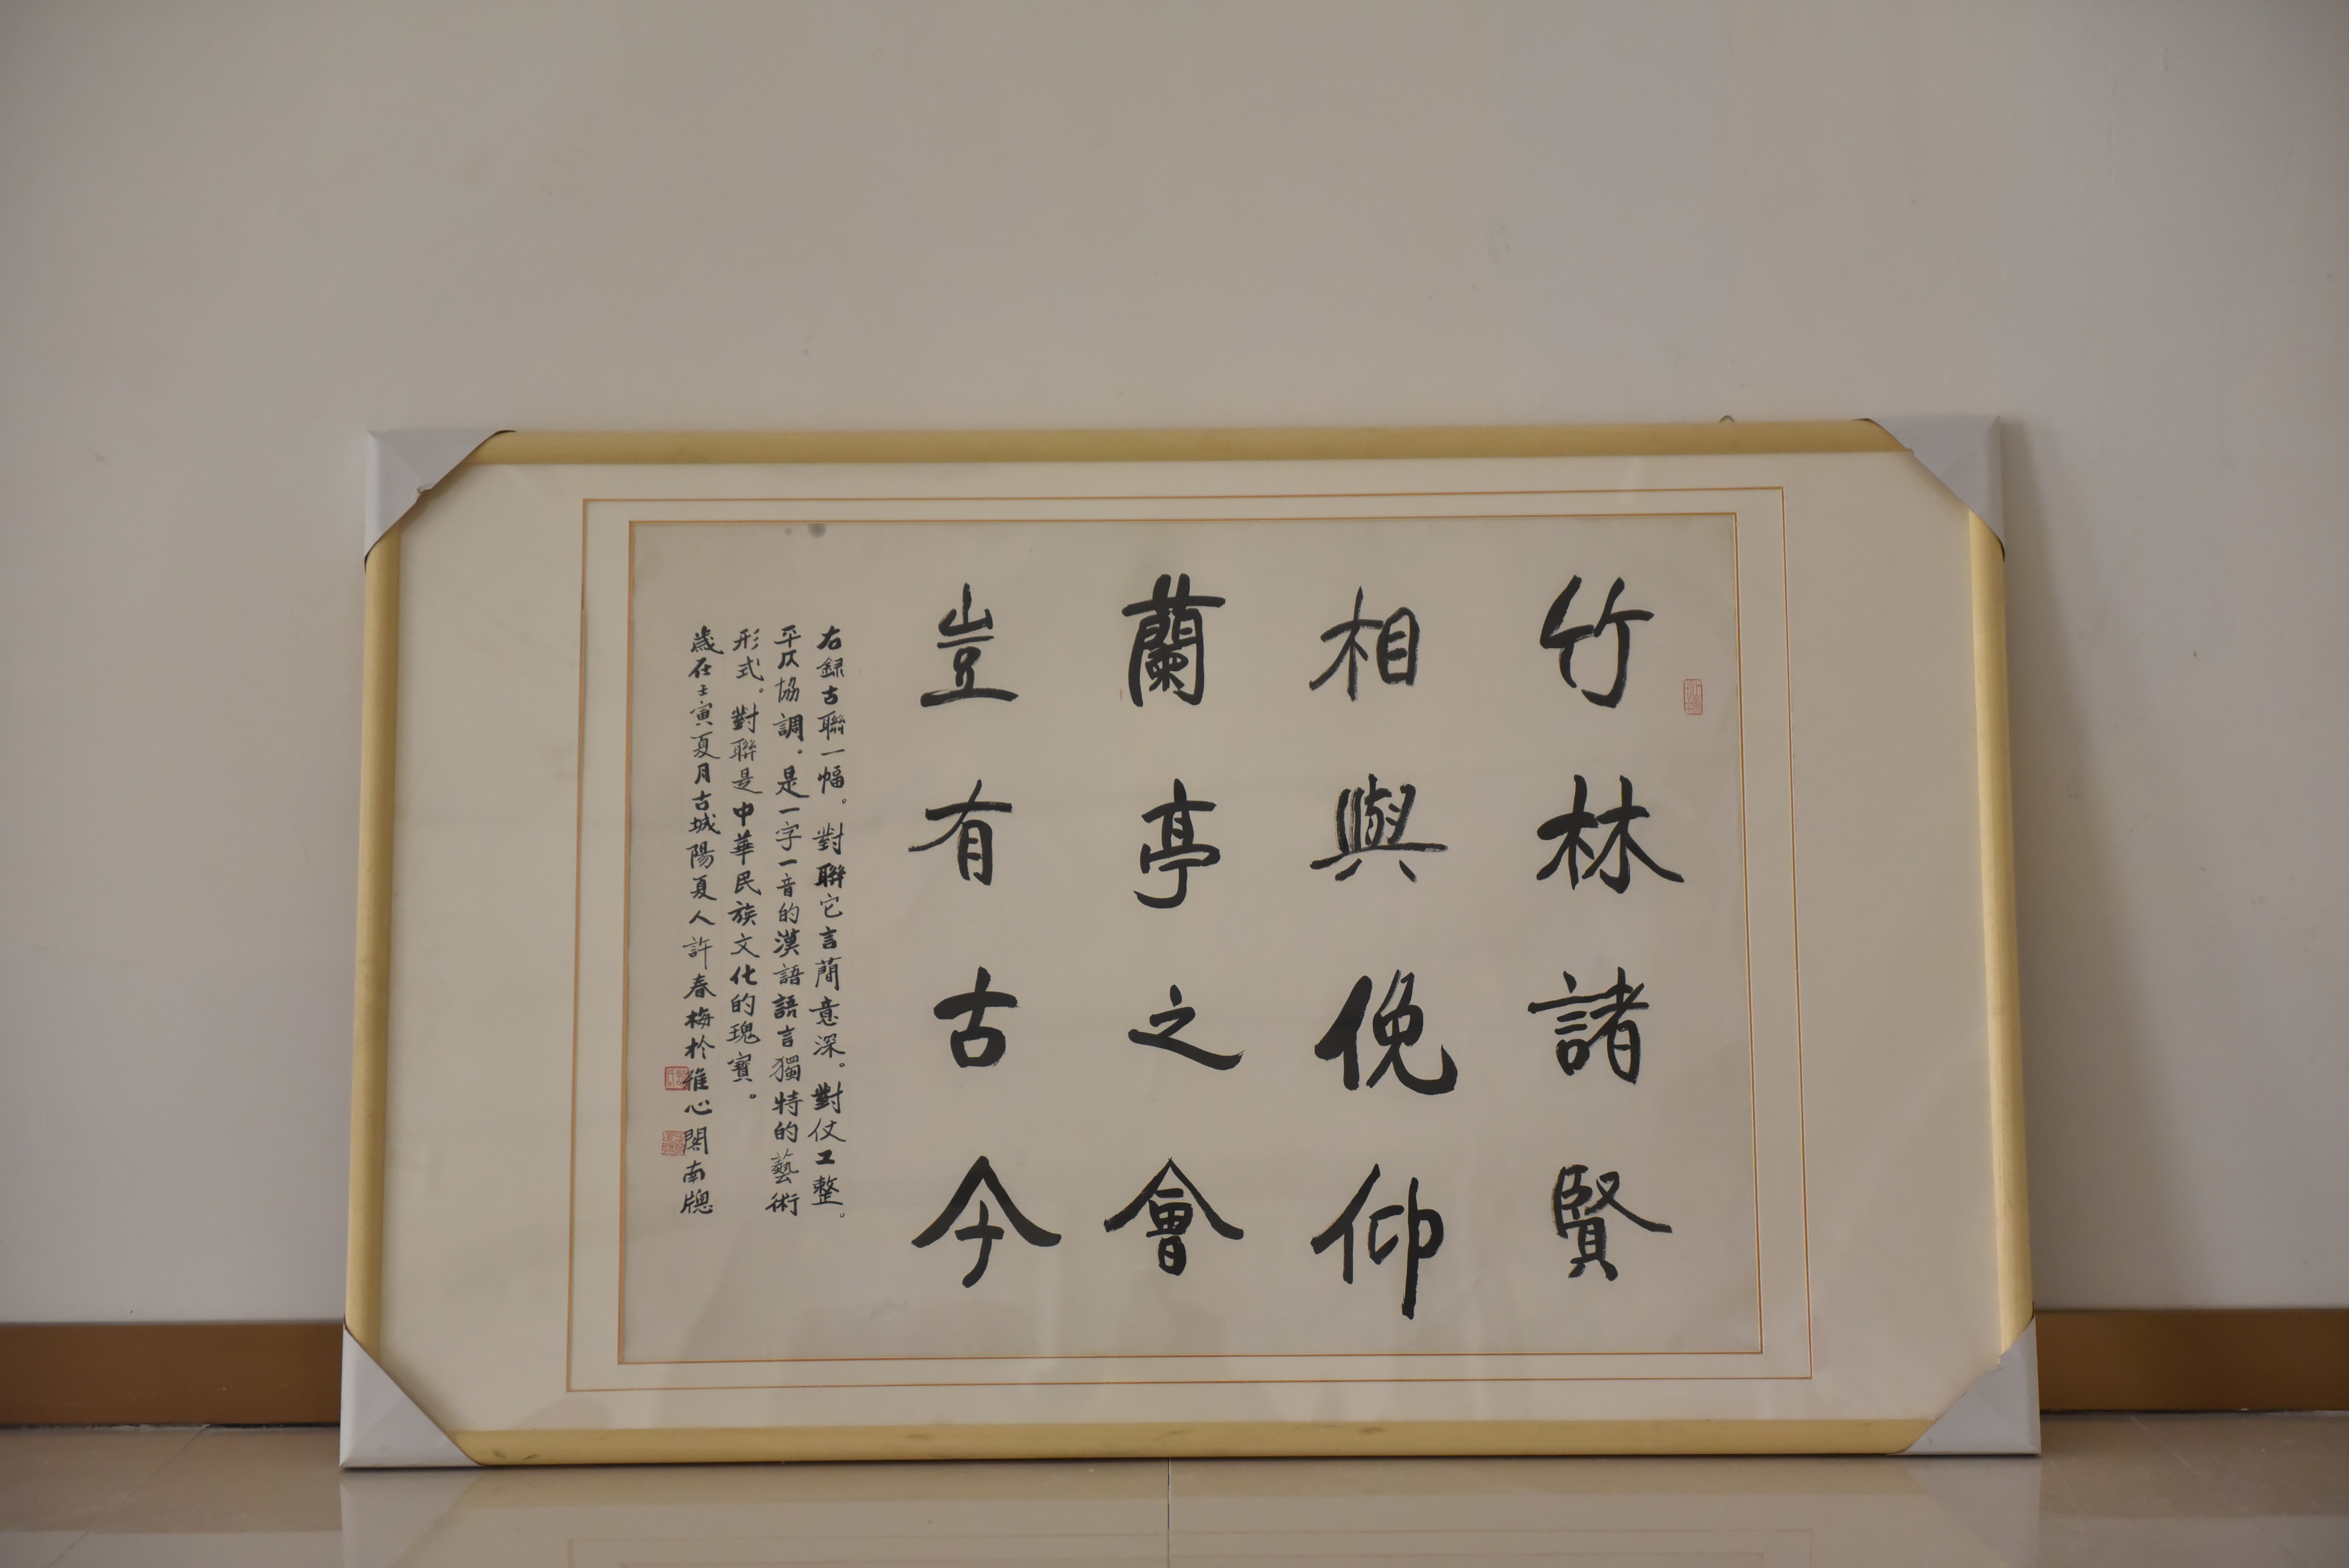 竹林諸賢
相與俛仰
蘭亭之會
豈有古今
右録古聯一幅。對聯它言蕳意深。對仗工整。
平仄協調。是一字一音的漢語語言獨特的藝術
形式。對聯是中華民族文化的瑰寶。
歲在壬寅夏月古城陽夏人許春梅於雅心閣南牕